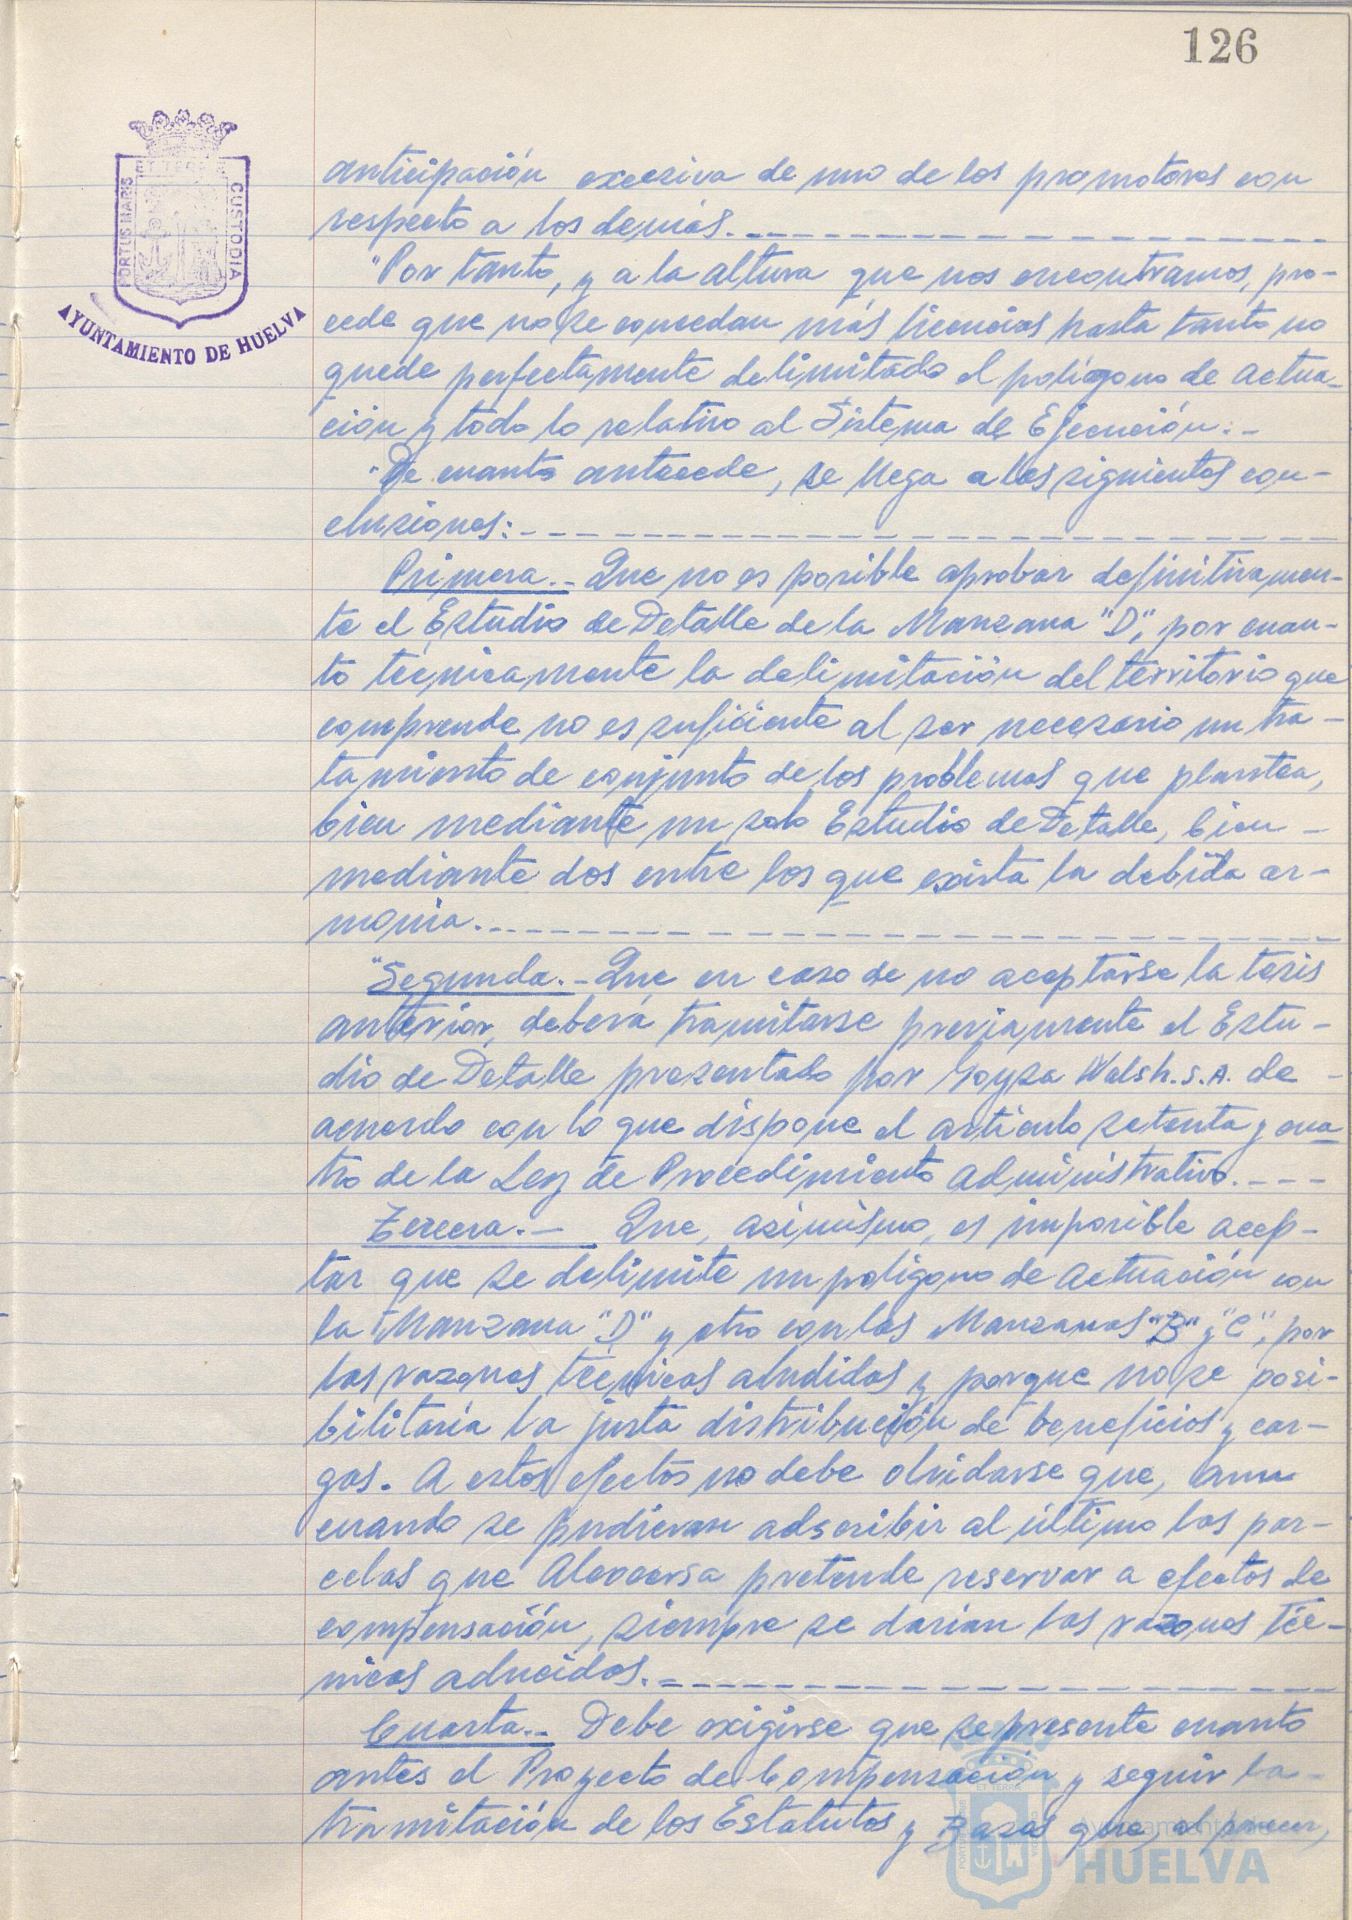 126
ET TERRÆ
PORTUS MARIS
CUSTODIA
AYUNTAMIENTO DE HUELVA
anticipación excesiva de uno de los promotores con
respecto a los demás.
"Por tanto, y a la altura que nos encontramos, pro-
cede que no se concedan más licencias hasta tanto no
quede perfectamente delimitado el polígono de actua-
ción y todo lo relativo al Sistema de Ejecución.-
"De cuanto antecede, se llega a las siguientes con-
clusiones:
Primera.- Que no es posible aprobar definitivamen-
te el Estudio de Detalle de la Manzana "D", por cuan-
to técnicamente la delimitación del territorio que
comprende no es suficiente al ser necesario un tra-
tamiento de conjunto de los problemas que plantea,
bien mediante un solo Estudio de Detalle, bien
mediante dos entre los que exista la debida ar-
monía.
"Segunda.- Que en caso de no aceptarse la tesis
anterior, deberá tramitarse previamente el Estu-
dio de Detalle presentado por Goyza Walsh. S.A. de
acuerdo con lo que dispone el artículo setenta y cua
tro de la Ley de Procedimiento Administrativo.
Tercera.- Que, asimismo, es imposible acep-
tar que se delimite un polígono de actuación con
la Manzana "D" y otro con las Manzanas "B" y "C", por
las razones técnicas aludidas y porque no se posi-
bilitaría la justa distribución de beneficios y car-
gas. A estos efectos no debe olvidarse que, aun
cuando se pudieran adscribir al último las par-
celas que pretende reservar a efectos de
compensación, siempre se darían las razones téc-
nicas aducidas.
Cuarta.- Debe exigirse que se presente cuanto
antes el Proyecto de Compensación y seguir la
tramitación de los Estatutos y Bases que, al parecer,
Ayuntamiento de
HUELVA